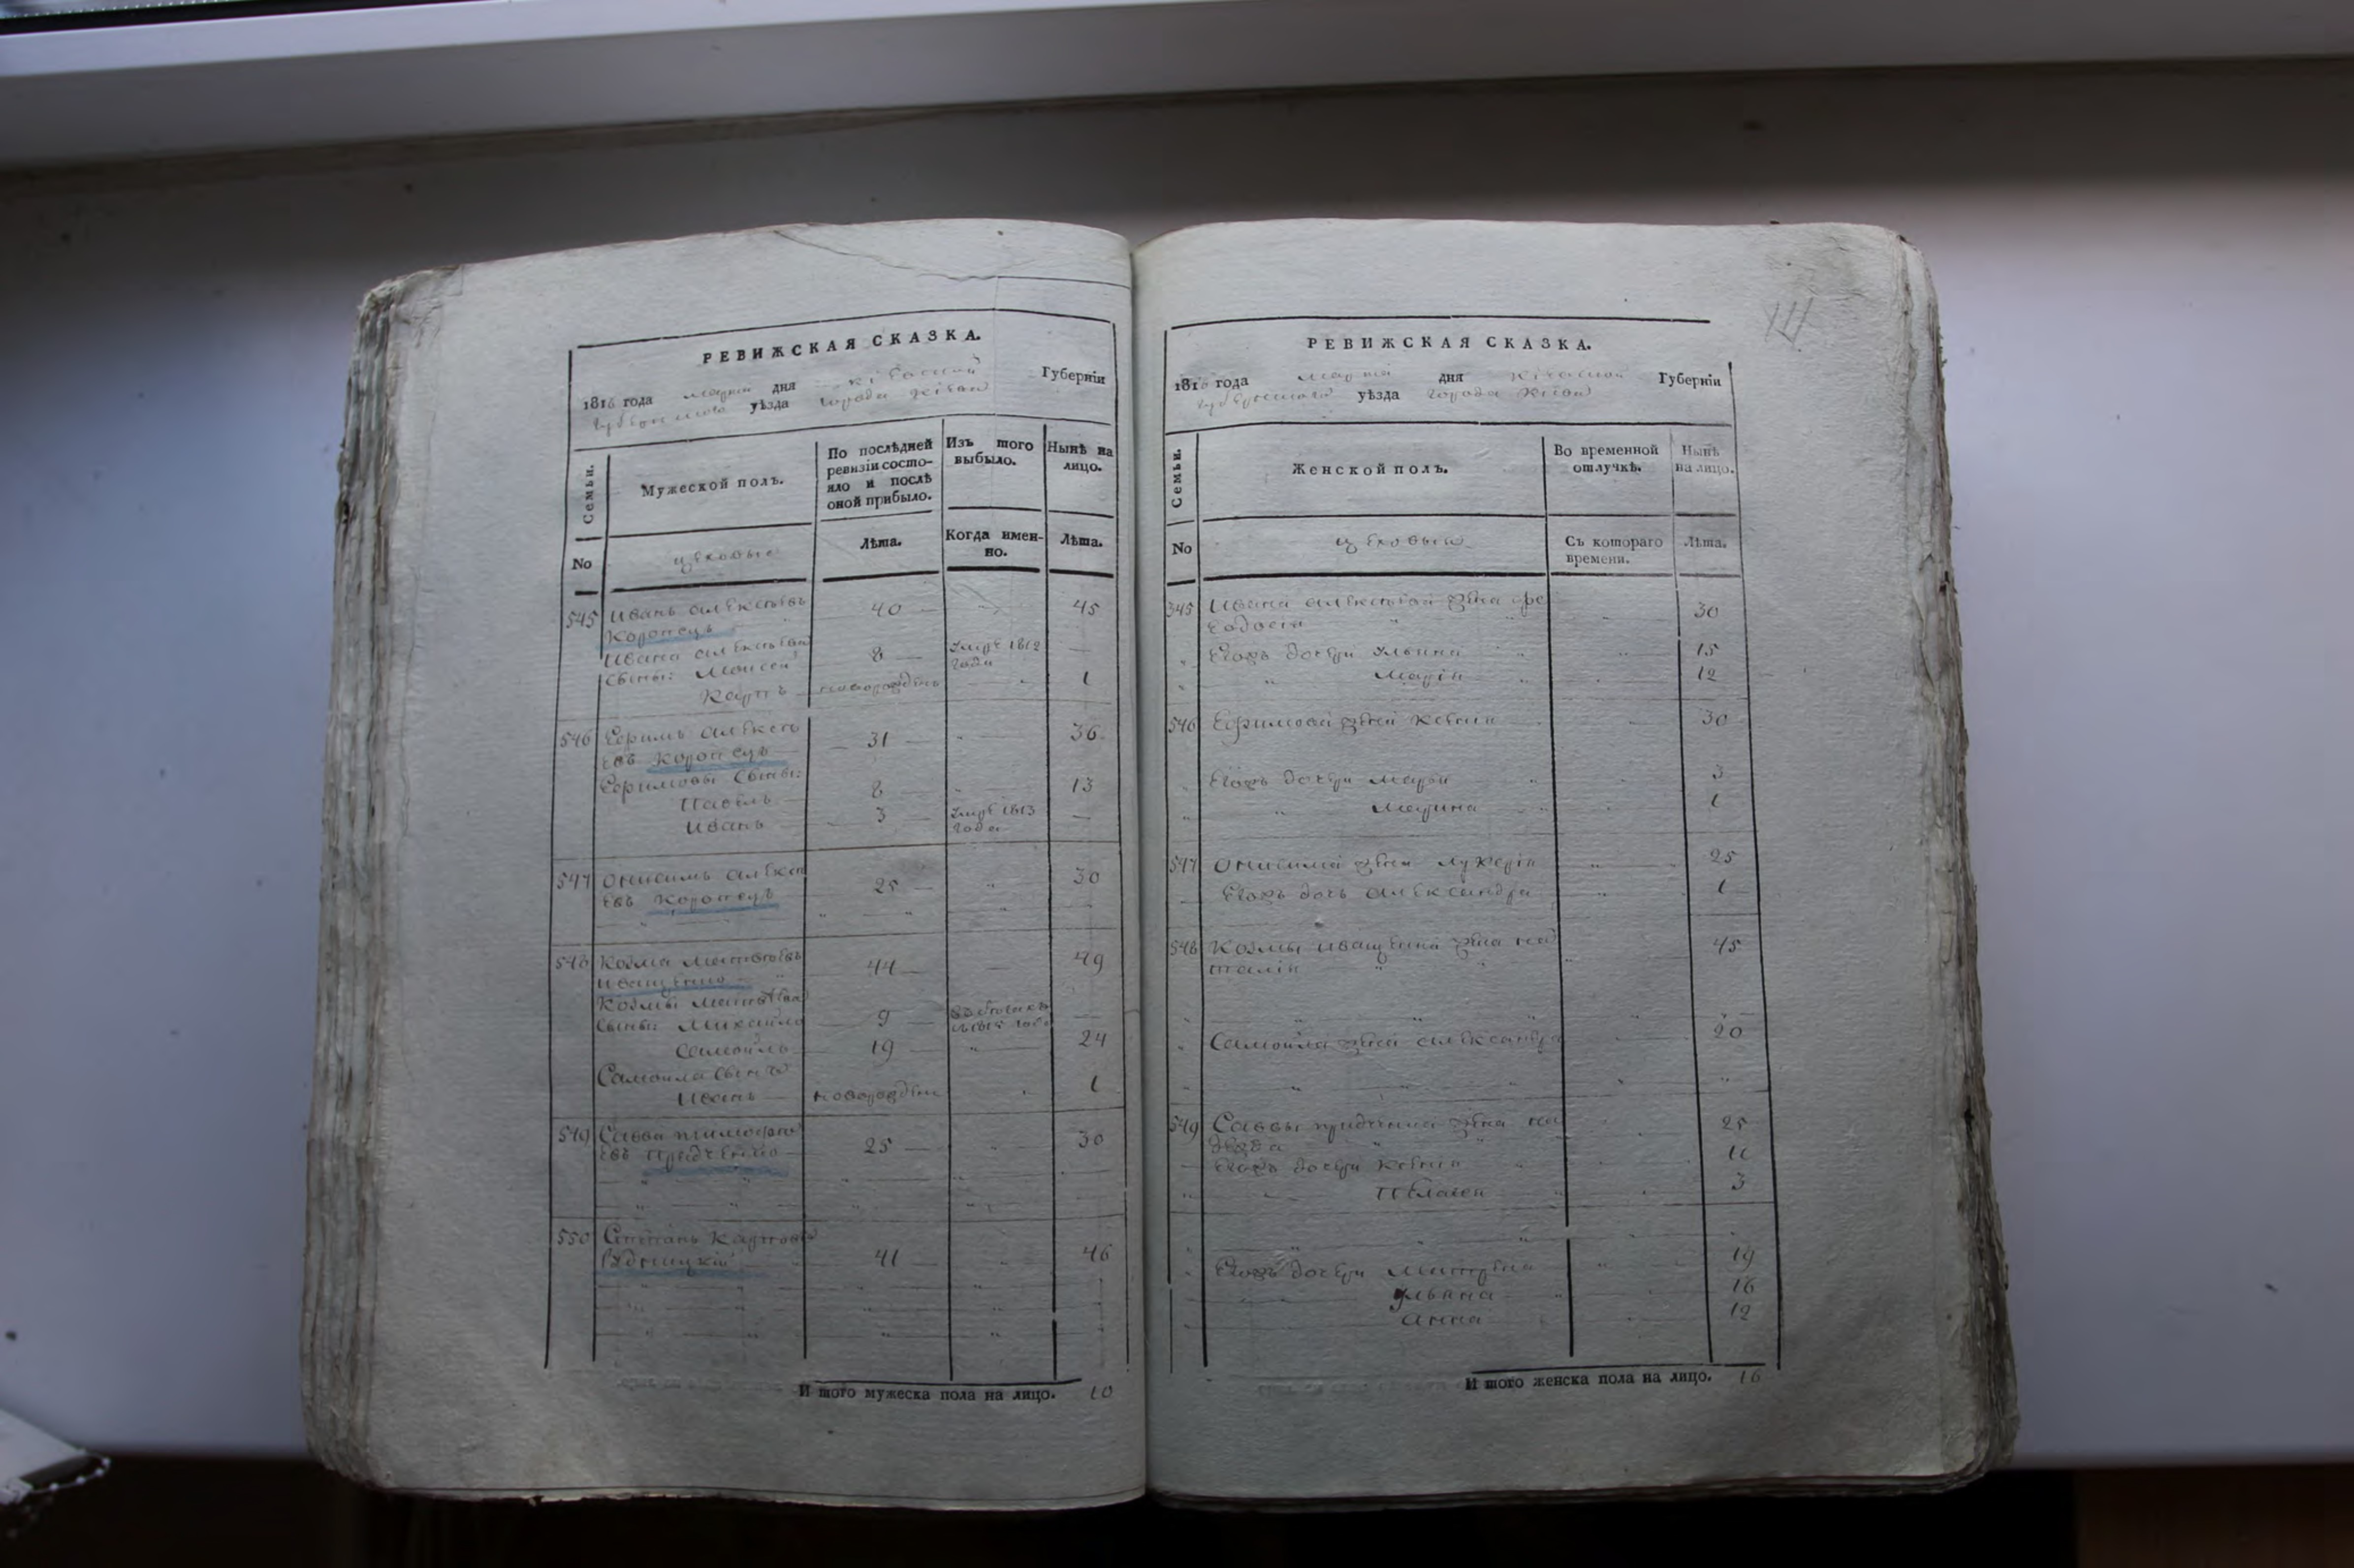 РЕВИЖСКАЯ СКАЗКА.
1816 года марта дня Кіевской Губерніи
уѣзда города Кіева
Семьи.
Мужеской полъ.
По послѣдней ревизіи состояло и послѣ оной прибыло.
Изъ того выбыло.
Нынѣ на лицо.
No
цеховые
Лѣта.
Когда именно.
Лѣта.
545 Иванъ Алексѣевъ 40 45
Коропецъ
Ивана Алексѣева
сыны: Моисей 8 умре 1812 года
Карпъ новорожденъ 1
546 Ефимъ Алексѣ 31 36
евъ Коропецъ
Ефимовы сыны:
Павелъ 8 13
Иванъ 3 умре 1813 года
547 Онисимъ Алексѣ 25 30
евъ Коропецъ
548 Козма Матвѣевъ 44 49
Иващенко
Козмы Матвѣева
сыны: Михайло 9 1815 года
Самойлъ 19 24
Самойла сынъ
Иванъ новорожденъ 1
549 Савва Тимофѣ 25 30
евъ
550 Степанъ Карповъ 41 46
И того мужеска пола на лицо. 10
РЕВИЖСКАЯ СКАЗКА.
1816 года марта дня Кіевской Губерніи
Губернского уѣзда города Кіева
Семьи.
Женской полъ.
Во временной отлучкѣ.
Нынѣ на лицо.
No
цеховые
Съ котораго времени.
Лѣта.
545 Ивана Алексѣева жена Фе 30
одосія
Егожъ дочери Ульяна 15
Марія 12
546 Ефимова жена Ксенія 30
Егожъ дочери Марья 3
Марина 1
547 Онисима жена Лукерія 25
Егожъ дочь Александра 1
548 Козмы Иващенка жена На 45
талія
Самойла жена Александра 20
549 Саввы жена На 25
дежда
Егожъ дочери Ксенія 11
Пелагея 3
Егожъ дочери Матрена 19
Ульяна 16
Анна 12
И того женска пола на лицо. 16